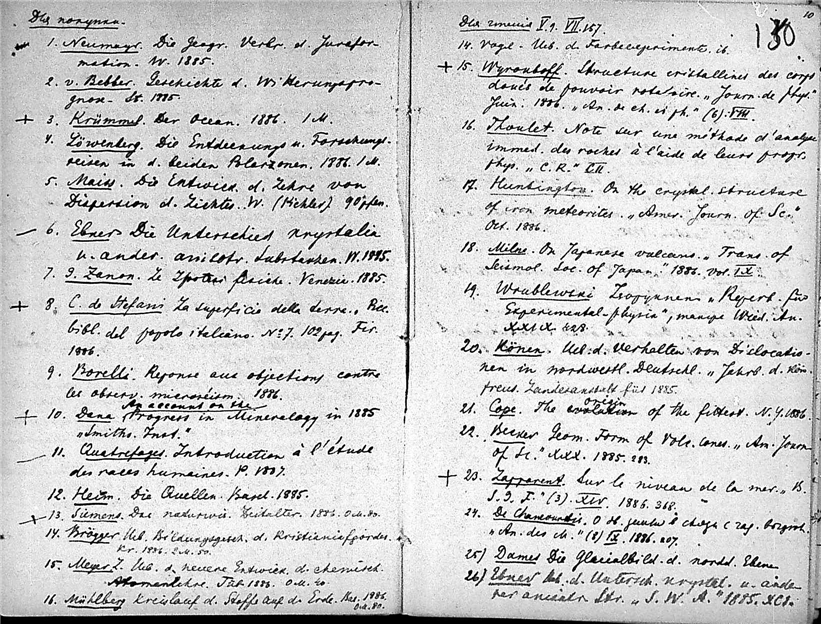 Для покупки.
1. Neumayr. Die Geogr. Verbr. d. Jurafor-
mation. W. 1885.
2. v. Bebber. Geschichte d. Witterungspro-
gnose. 1885.
+ 3. Krümmel. Der Ocean. 1886. 1 M.
4. Löwenberg. Die Entdeckungs u. Forschungs-
reisen in d. beiden Polarzonen. 1886. 1 M.
5. Maiss. Die Entwick. d. Lehre von
Dispersion d. Lichtes. W. (Pichler) 90 pfen.
— 6. Ebner Die Unterschied krystalin
u. ander. anisotr. Substanzen. W. 1885.
7. Zanon. Le fisiche. Venezia. 1885.
+ 8. C. de Stefani La superficie della terra. „
bibl. del popolo italiano. № 7. 102 pag. Fir.
1886.
9. Borelli. Reponse aux objections contre
les observ. microséism. 1886.
An account on the
+ 10. Dana Progress in Mineralogy in 1885
„Smiths. Inst."
— 11. Quatrefages. Introduction à l'étude
des races humaines. P. 1887.
12. Heim. Die Quellen. Basel. 1885.
+ 13. Siemens. Das naturwis. Zeitalter. 1886. 0 M. 80.
14. Brögger Ueb. Bildungsgesch. d. Kristianiafjordes.
Kr. 1886. 2 M. 50.
15. Meyer L. Ueb. d. neuere Entwick. d. chemisch.
Atomenlehre. Tüb. 1886. 0 M. 40.
16. Mühlberg Kreislauf d. Stoffe auf d. Erde. Bas. 1886.
0 M. 80.
10
130
Для V. 9. VII. 157.
14. Vogel. Ueb. d. Farbeexperimente. ib.
+ 15. Wyrouboff. Structure cristallines des corps
doués de pouvoir rotatoire. „Journ. de phys."
Juin. 1886. „An. de ch. et ph." (6). VIII.
16. Thoulet. Note sur une méthode d'analyse
immed. des roches à l'aide de leurs propr.
phys. „C. R."
17. Huntington. On the crystal. structure
of iron meteorites. „Amer. Journ. of Sc."
Oct. 1886.
18. Milne. On Japanese vulcans. „Trans. of
Seismol. Soc. of Japan." 1886. vol. IX.
19. Wrublewski Изопикнен „Repert. für
Experimental-physik", Wied. An.
XXIX. 428.
20. Könen. Ueb. d. Verhalten von Dislocatio-
nen in nordwestl. Deutschl. „Jahrb. d. Kön.
preus. Landesanstalt für 1885.
Origin
21. Cope. The evolution of the fittest. N. Y. 1886.
22. Becker Geom. Form of Volc. cones. „Am. Journ.
of Sc." XXX. 1885. 283.
+ 23. Lapparent. Sur le niveau de la mer. „B.
S. G. F." (3). XIV. 1886. 368.
24. De Chancourtois.
„An. des M." (8) IX. 1886. 207.
25) Dames Die Glacialbild. d. nordd. Ebene
26) Ebner Ueb. d. Untersch. krystal. u. ande-
rer anisotr. Str. „S. W. A." 1885. XCI.